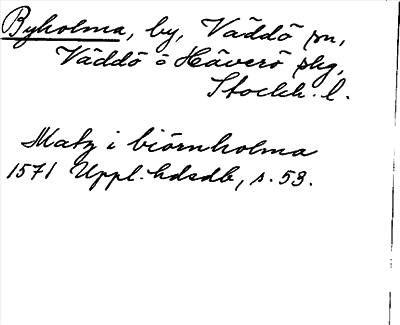 Byholma, by, Väddö sn,
Väddö o Häverö skg,
Stockh. l.
Matz i biörnholma
1571 Uppl. hdsdb, s. 53.